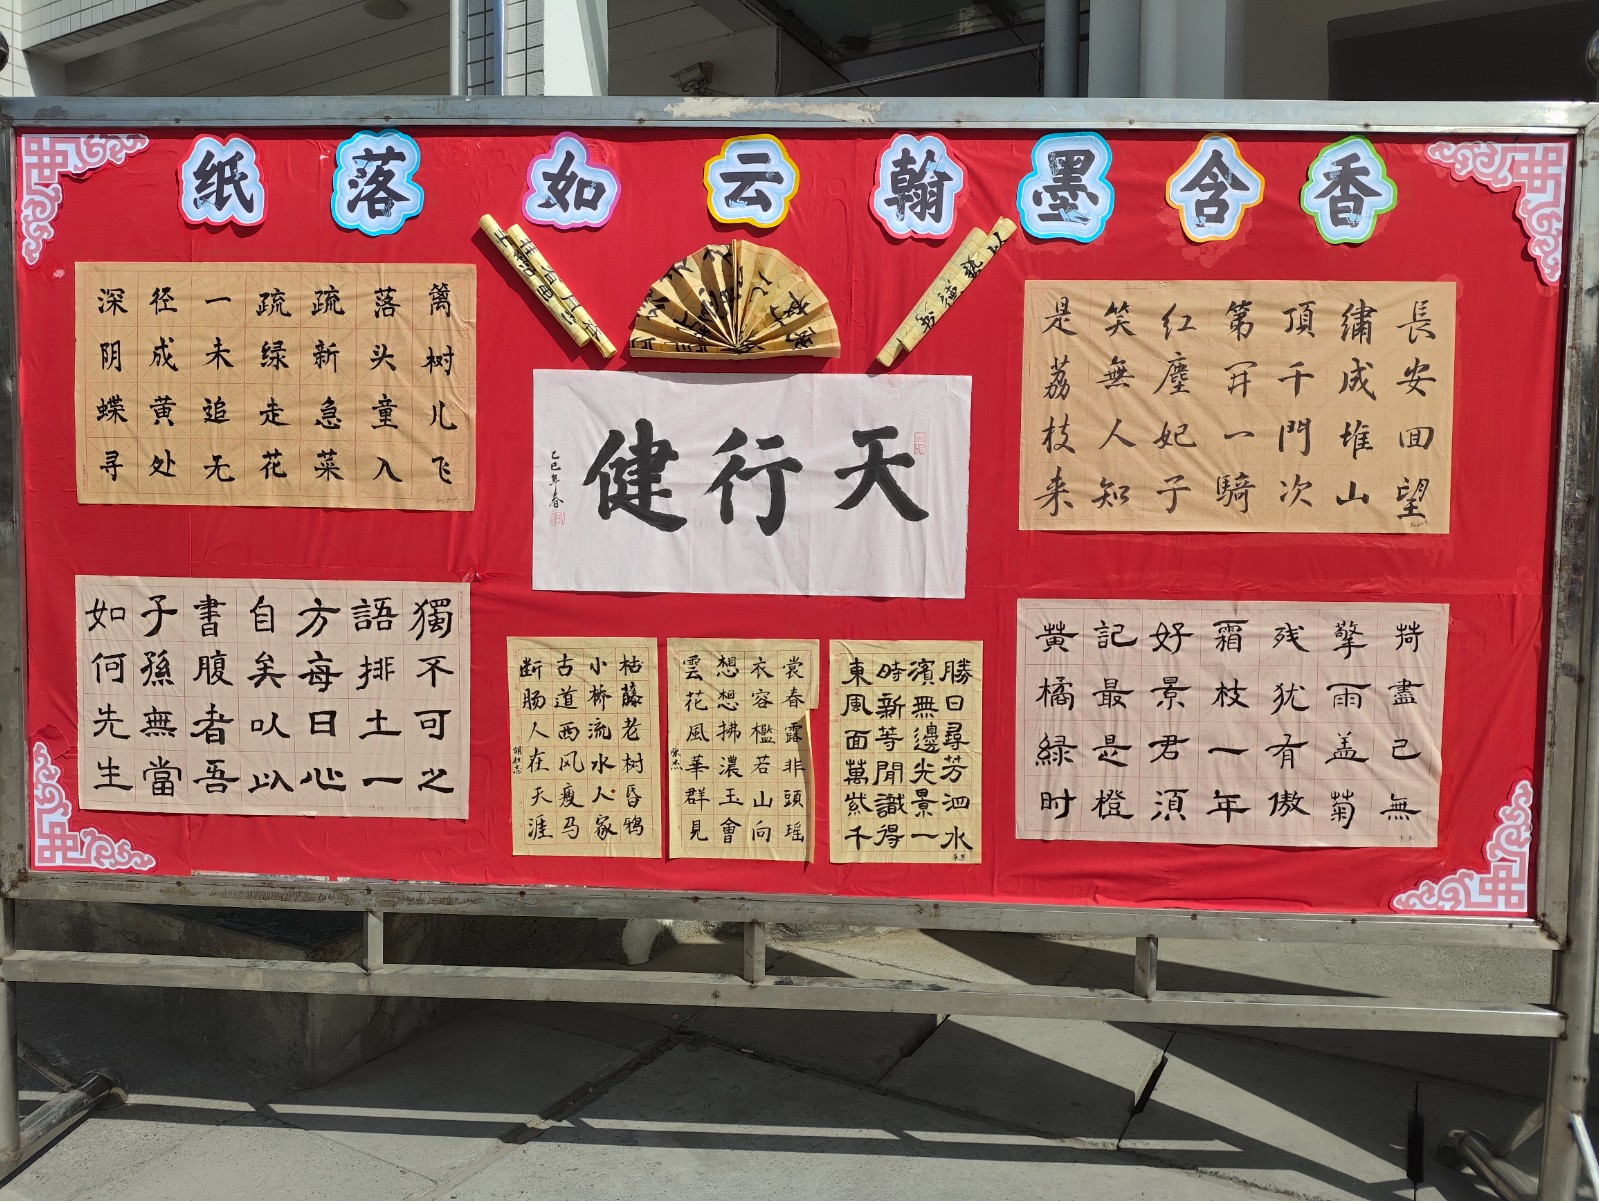 纸落如云翰墨含香
篱落疏疏一径深
树头新绿未成阴
儿童急走追黄蝶
飞入菜花无处寻
天行健
乙巳年春
長安回望
繡成堆山
頂千門次
第开一騎
红塵妃子
笑無人知
是荔枝来
獨不可之
語排土一
方每日心
自矣以以
書腹者吾
子孫無當
如何先生
枯藤老树昏鸦
小桥流水人家
古道西风瘦马
断肠人在天涯
雲想衣裳
花想容春
風拂檻露
華濃若非
群玉山頭
見會向瑶
勝日尋芳泗水
濱無邊光景一
時新等閒識得
東風面萬紫千
荷盡已無
擎雨盖菊
残犹有傲
霜枝一年
好景君須
記最是橙
黄橘緑时